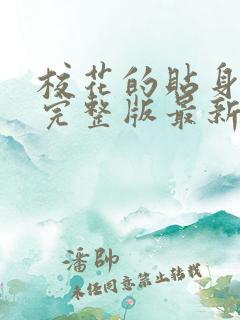 校花的贴身
完整版最新
潘帥
未经同意禁止转载